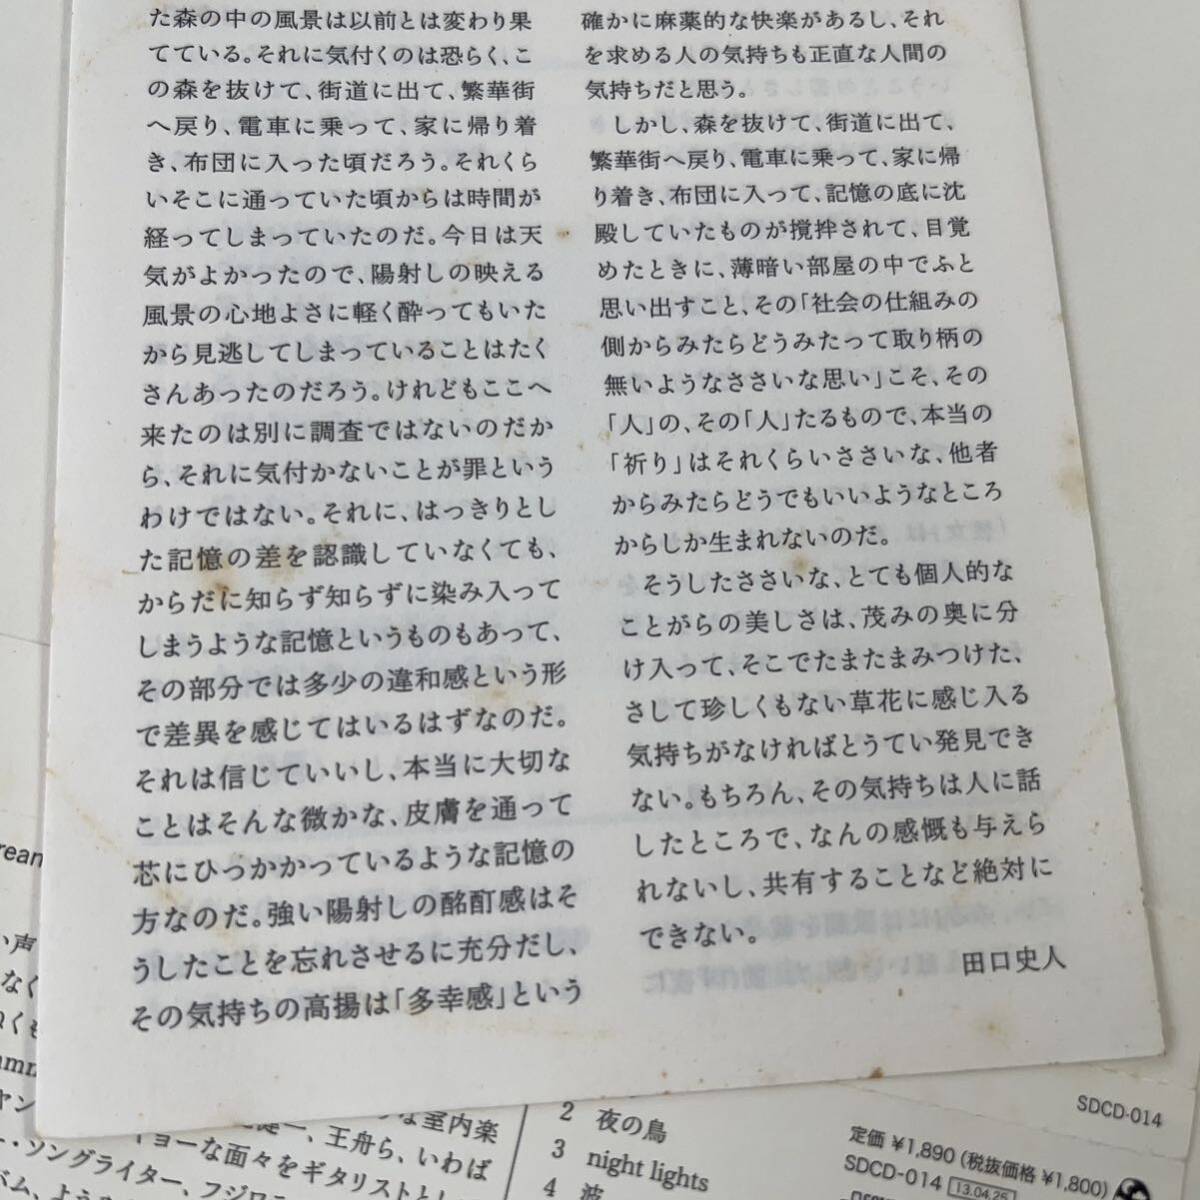 た森の中の風景は以前とは変わり果
てている。それに気付くのは恐らく、こ
の森を抜けて、街道に出て、繁華街
へ戻り、電車に乗って、家に帰り着
き、布団に入った頃だろう。それくら
いそこに通っていた頃からは時間が
経ってしまっていたのだ。今日は天
気がよかったので、陽射しの映える
風景の心地よさに軽く酔ってもいた
から見逃してしまっていることはたく
さんあったのだろう。けれどもここへ
来たのは別に調査ではないのだか
ら、それに気付かないことが罪という
わけではない。それに、はっきりとし
た記憶の差を認識していなくても、
からだに知らず知らずに染み入って
しまうような記憶というものもあって、
その部分では多少の違和感という形
で差異を感じてはいるはずなのだ。
それは信じていいし、本当に大切な
ことはそんな微かな、皮膚を通って
芯にひっかかっているような記憶の
方なのだ。強い陽射しの酩酊感はそ
うしたことを忘れさせるに充分だし、
その気持ちの高揚は「多幸感」という
確かに麻薬的な快楽があるし、それ
を求める人の気持ちも正直な人間の
気持ちだと思う。
しかし、森を抜けて、街道に出て、
繁華街へ戻り、電車に乗って、家に帰
り着き、布団に入って、記憶の底に沈
殿していたものが撹拌されて、目覚
めたときに、薄暗い部屋の中でふと
思い出すこと、その「社会の仕組みの
側からみたらどうみたって取り柄の
無いようなささいな思い」こそ、その
「人」の、その「人」たるもので、本当の
「祈り」はそれくらいささいな、他者
からみたらどうでもいいようなところ
からしか生まれないのだ。
そうしたささいな、とても個人的な
ことがらの美しさは、茂みの奥に分
け入って、そこでたまたまみつけた、
さして珍しくもない草花に感じ入る
気持ちがなければとうてい発見でき
ない。もちろん、その気持ちは人に話
したところで、なんの感慨も与えら
れないし、共有することなど絶対に
できない。
田口史人
い声
なく
室内楽
王舟ら、いわば
ョーな面々をギタリストとし
ソングライター、フジロ
2 夜の鳥
3 night lights
4 波
SDCD-014
定価 ¥1,890(税抜価格 ¥1,800)
SDCD-014 13.04.25